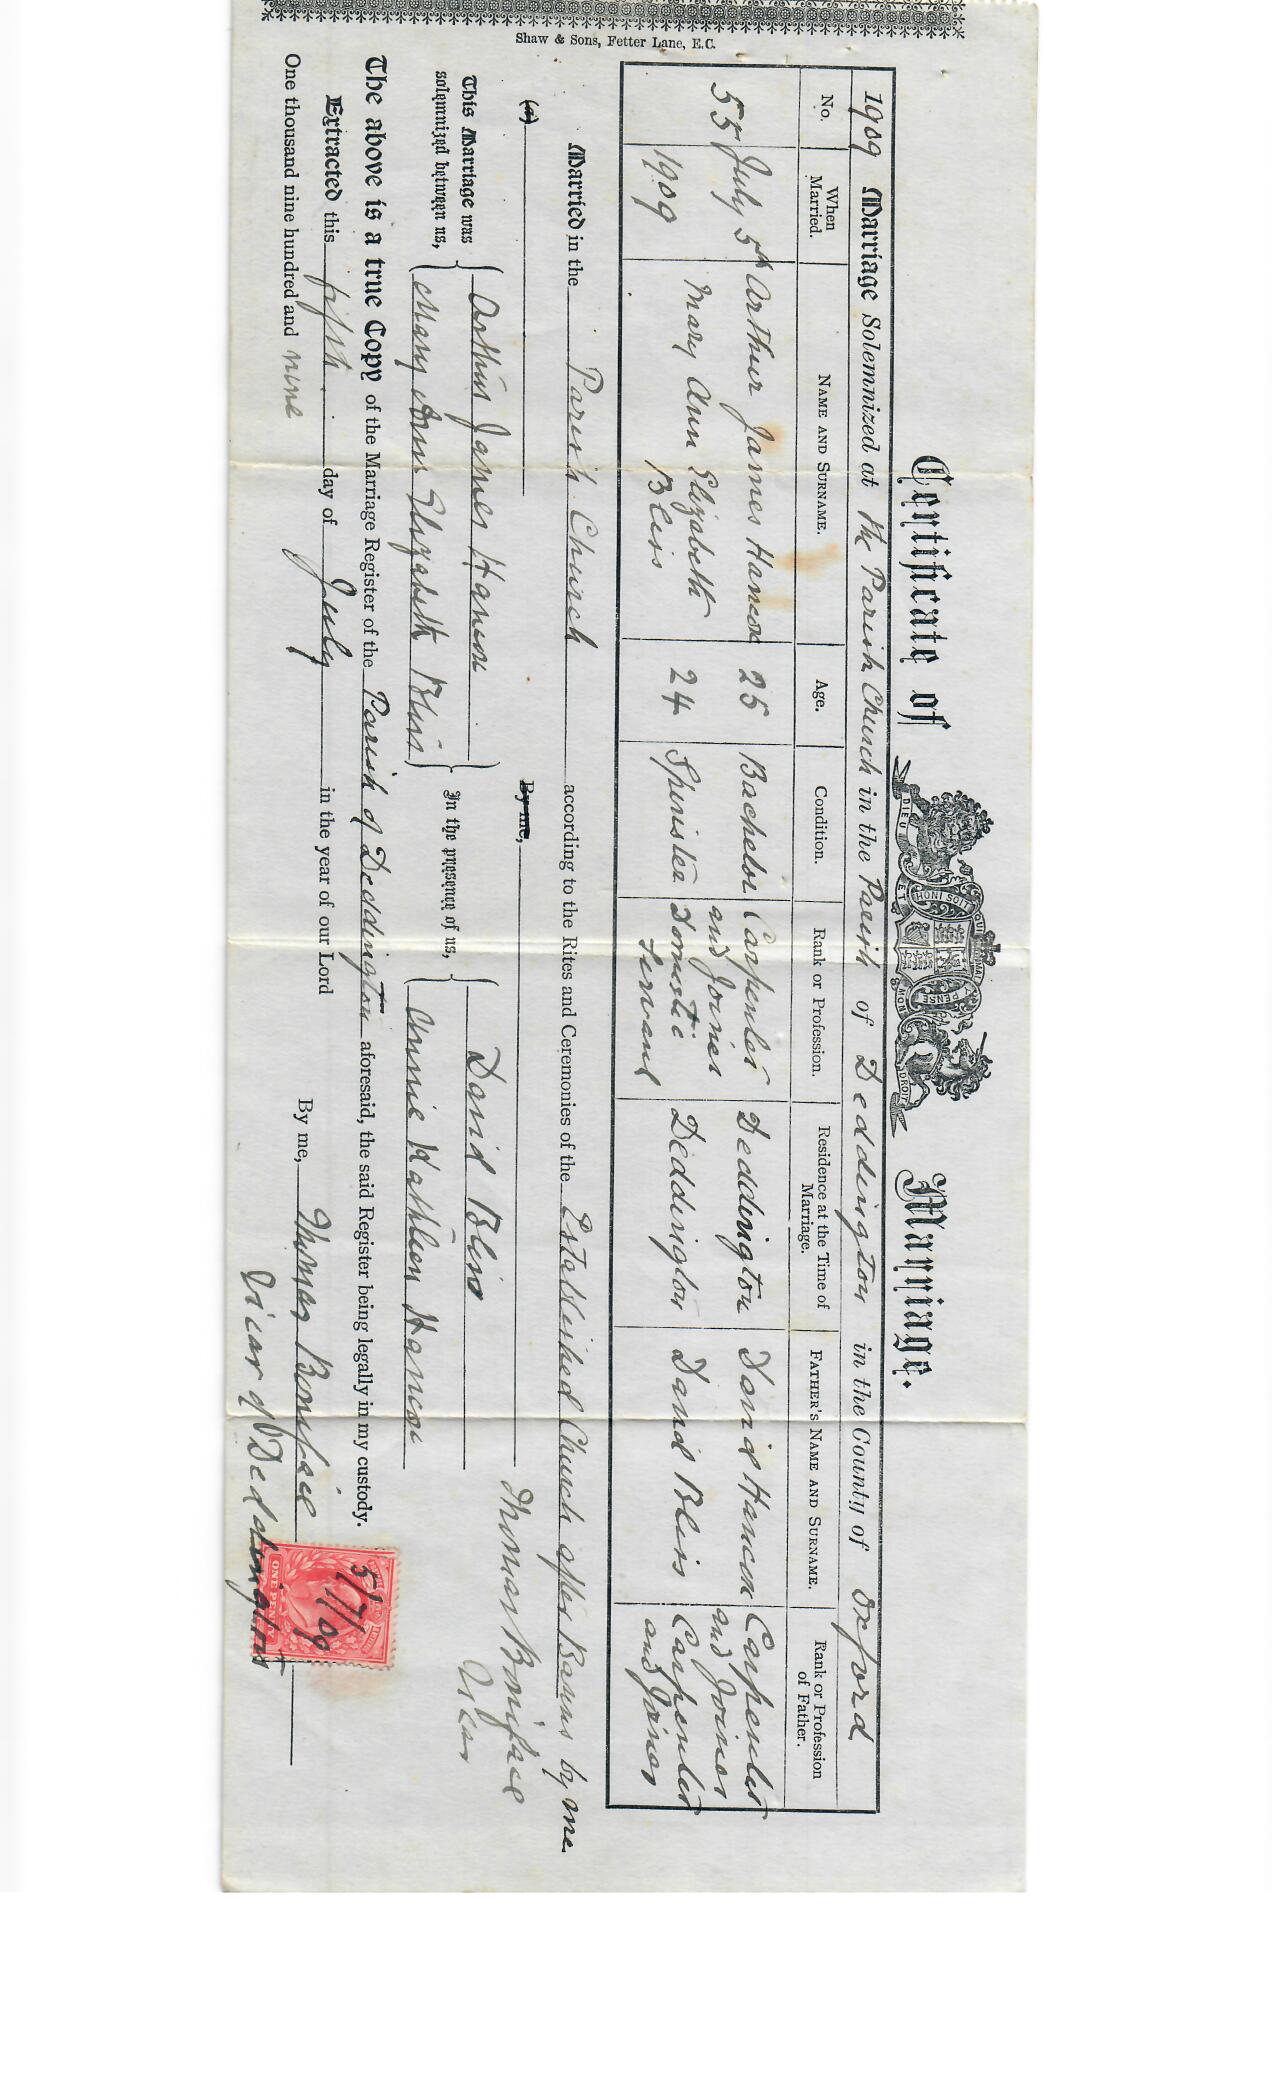 Shaw & Sons, Fetter Lane, E.C.
Certificate of Marriage.
DIEU ET MON DROIT
HONI SOIT QUI MAL Y PENSE
1909 Marriage Solemnized at the Parish Church in the Parish of Deddington in the County of Oxford
No. When Married. NAME AND SURNAME. Age. Condition. Rank or Profession. Residence at the Time of Marriage. FATHER'S NAME AND SURNAME. Rank or Profession of Father.
55 July 5th 1909 Arthur James Hancox 25 Bachelor Carpenter and Joiner Deddington David Hancox Carpenter and Joiner
Mary Ann Elizabeth Bliss 24 Spinster Domestic Servant Deddington David Bliss Carpenter and Joiner
Married in the Parish Church according to the Rites and Ceremonies of the Established Church after Banns by me.
(a) By me, Thomas Boniface Vicar
This Marriage was solemnized between us, Arthur James Hancox
Mary Ann Elizabeth Bliss
In the presence of us, David Bliss
Annie Kathleen Hancox
The above is a true Copy of the Marriage Register of the Parish of Deddington aforesaid, the said Register being legally in my custody.
Extracted this fifth day of July in the year of our Lord
One thousand nine hundred and nine By me, Thomas Boniface
Vicar of Deddington
5/7/09
ONE PENNY